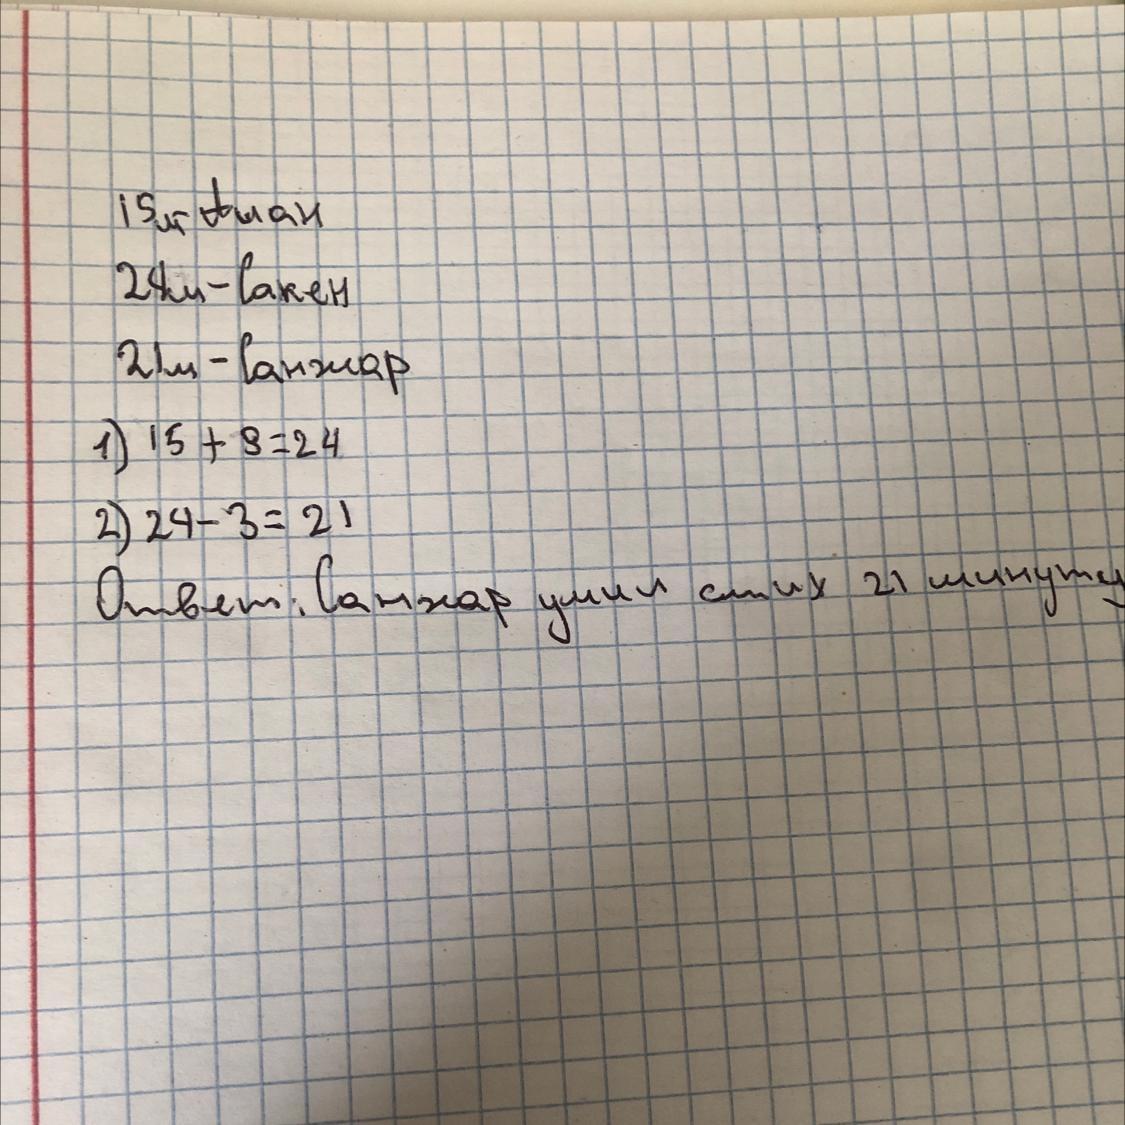 15м-Аман
24м-Сакен
21м-Санжар
1) 15 + 9=24
2) 24-3= 21
Ответ: Санжар учил стих 21 минуту